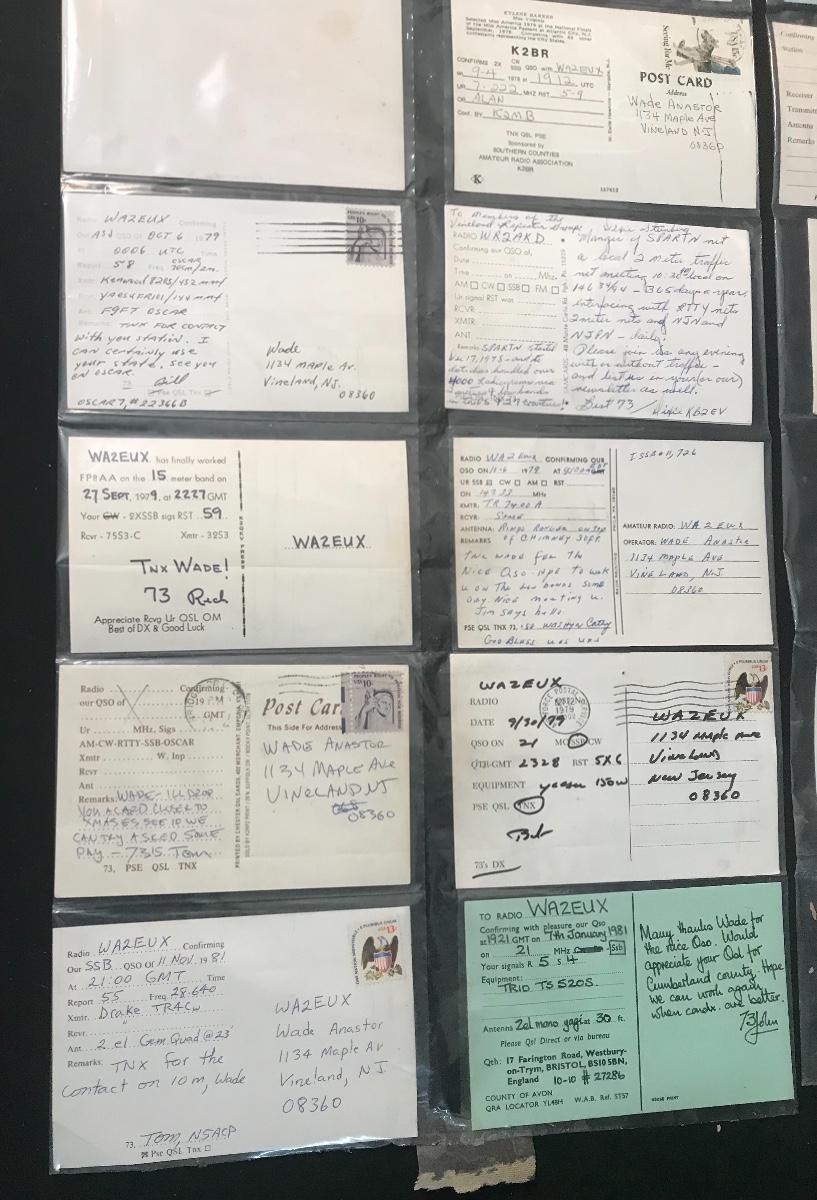 KYLENE BARKER
Miss Virginia
Selected Miss America 1979 at the National Finals
of the Miss America Pageant at Atlantic City, N.J.
September, 1978. Competing with 49 other
contestants representing the City States.
K2BR
CONFIRMS 2X CW SSB QSO with WA2EUX
on 9-4 1978 at 1912 UTC
UR 7.222 MHZ RST 5-9
OP ALAN
Conf. BY K2MB
TNX QSL PSE
Sponsored by
SOUTHERN COUNTIES
AMATEUR RADIO ASSOCIATION
K2BR
K
157612
Seeing For Me
POST CARD
Address
WADE ANASTOR
1134 MAPLE AVE
VINELAND N.J.
08360
Confirming
Station
Receiver
Transmitt
Antenna
Remarks
Radio WA2EUX Confirming
Our ASd QSO OF OCT 6 1979
At 0006 UTC Time
Report 58 Freq. OSCAR 70cm/2m.
Xmtr. Kenwood 820S/432 mmf
Rcvr. YAESU FR101/144 mmf
Ant. F9FT OSCAR
Remarks: TNX FOR CONTACT
WITH YOUR STATION. I
CAN certainly use
your STATE. SEE YOU
ON OSCAR.
73, Bill
Pse QSL Tnx
OSCAR 7, # 22366 B
USA 10c
Wade
1134 MAPLE AV.
VINELAND, NJ.
08360
To Members of the
Vineland Repeater Group
RADIO WR2AKD
Confirming our QSO of,
Date
Time on Mhz.
AM CW SSB FM
Ur signal RST was
RCVR.
XMTR.
ANT.
Remarks SPARTN started
Dec 17, 1975 - and to
date has handled over
4000 Radiograms
Manager of SPARTN net
a local 2 meter traffic
net meeting 10:30 PM local on
146 - 365 days a year,
interfacing with RTTY nets
2 meter nets and NJN and
NJPN - daily.
Please join us any evening
with or without traffic -
and list us in your (or our)
newsletter as well.
Best 73/ K62EV
WA2EUX has finally worked
FP8AA on the 15 meter band on
27 SEPT, 1979, at 2227 GMT
Your CW - 2XSSB sigs RST 59
Rcvr - 75S3-C Xmtr - 32S3
TNX WADE!
73 Rich
Appreciate Rcvg Ur QSL OM
Best of DX & Good Luck
WA2EUX
RADIO WA2EUX CONFIRMING OUR
QSO ON 11-6 1979 AT
UR SSB CW AM RST
ON MHz
XMTR: TR 7400 A
RCVR: SAME
ANTENNA: RINGO RANGER ON TOP
REMARKS OF CHIMNEY 50FT.
TNX WADE FOR THE
NICE QSO. HPE TO WORK
U ON THE LOW BANDS SOME
DAY. NICE MEETING U.
JIM SAYS HELLO.
PSE QSL TNX 73, Cathy
GOD BLESS
ISSB # 11,726
AMATEUR RADIO: WA2EUX
OPERATOR: WADE ANASTOR
1134 MAPLE AVE
VINELAND, N.J.
08360
Radio Confirming
our QSO of 19
GMT
Ur MHz, Sigs
AM-CW-RTTY-SSB-OSCAR
Xmtr W. Inp
Rcvr
Ant
Remarks: WADE- I'LL DROP
YOU A CARD CLOSER TO
XMAS ES SEE IF WE
CAN TRY A SKED SOME
DAY - 73'S Tom
73, PSE QSL TNX
PRINTED BY CHESTER QSL CARDS, 402 MERCHANT, EMPORIA, KS
Post Car
This Side For Address
USA 10c
WADE ANASTOR
1134 MAPLE AVE
VINELAND NJ
08360
WA2EUX
RADIO
DATE 9/30/79
QSO ON 21 MC SSB CW
QTR-GMT 2328 RST 5X6
EQUIPMENT yaesu 150W
PSE QSL TNX
Bob
73's DX
1979
USA 13c
WA2EUX
1134 Maple Ave
Vineland
New Jersey
08360
Radio WA2EUX Confirming
Our SSB QSO of 11 NOV. 1981
At 21:00 GMT Time
Report 55 Freq. 28.640
Xmtr. Drake TR4Cw
Rcvr.
Ant. 2 el. Gem Quad @ 23'
Remarks: TNX for the
contact on 10m, Wade
73, TOM, N5ACP
Pse QSL Tnx
E PLURIBUS UNUM
USA 13c
WA2EUX
Wade Anastor
1134 Maple Av
Vineland, NJ.
08360
TO RADIO WA2EUX
Confirming with pleasure our Qso
at 1921 GMT on 7th January 1981
on 21 MHz Ssb
Your signals R 5 S 4
Equipment:
TRIO TS 520S.
Antenna 2el mono yagi at 30 ft.
Please Qsl Direct or via bureau
Qth: 17 Farington Road, Westbury-
on-Trym, BRISTOL, BS10 5BN,
England 10-10 # 27286
COUNTY OF AVON
QRA LOCATOR YL48H W.A.B. Ref. ST57
Many thanks Wade for
the nice Qso. Would
appreciate your Qsl for
Cumberland county. Hope
we can work again
when condx. are better.
73 John